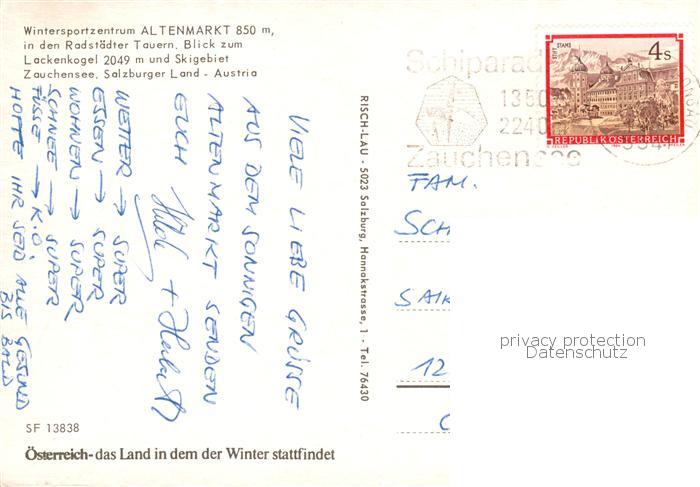 Wintersportzentrum ALTENMARKT 850 m,
in den Radstädter Tauern. Blick zum
Lackenkogel 2049 m und Skigebiet
Zauchensee. Salzburger Land - Austria
VIELE LIEBE GRÜSSE
AUS DEM SONNIGEN
ALTENMARKT SENDEN
EUCH
+ Hubert
WETTER → SUPER
ESSEN → SUPER
WOHNEN → SUPER
SCHNEE → SUPER
FÜSSE → K.O.
HOFFE IHR SEID ALLE GESUND
BIS BALD
SF 13838
Österreich-das Land in dem der Winter stattfindet
RISCH-LAU - 5023 Salzburg, Hannakstrasse, 1 - Tel. 76430
Schiparad
1350
2240
Zauchensee
STIFT STAMS
4 S
REPUBLIK ÖSTERREICH
FAM.
SCH
SAIK
12
privacy protection
Datenschutz